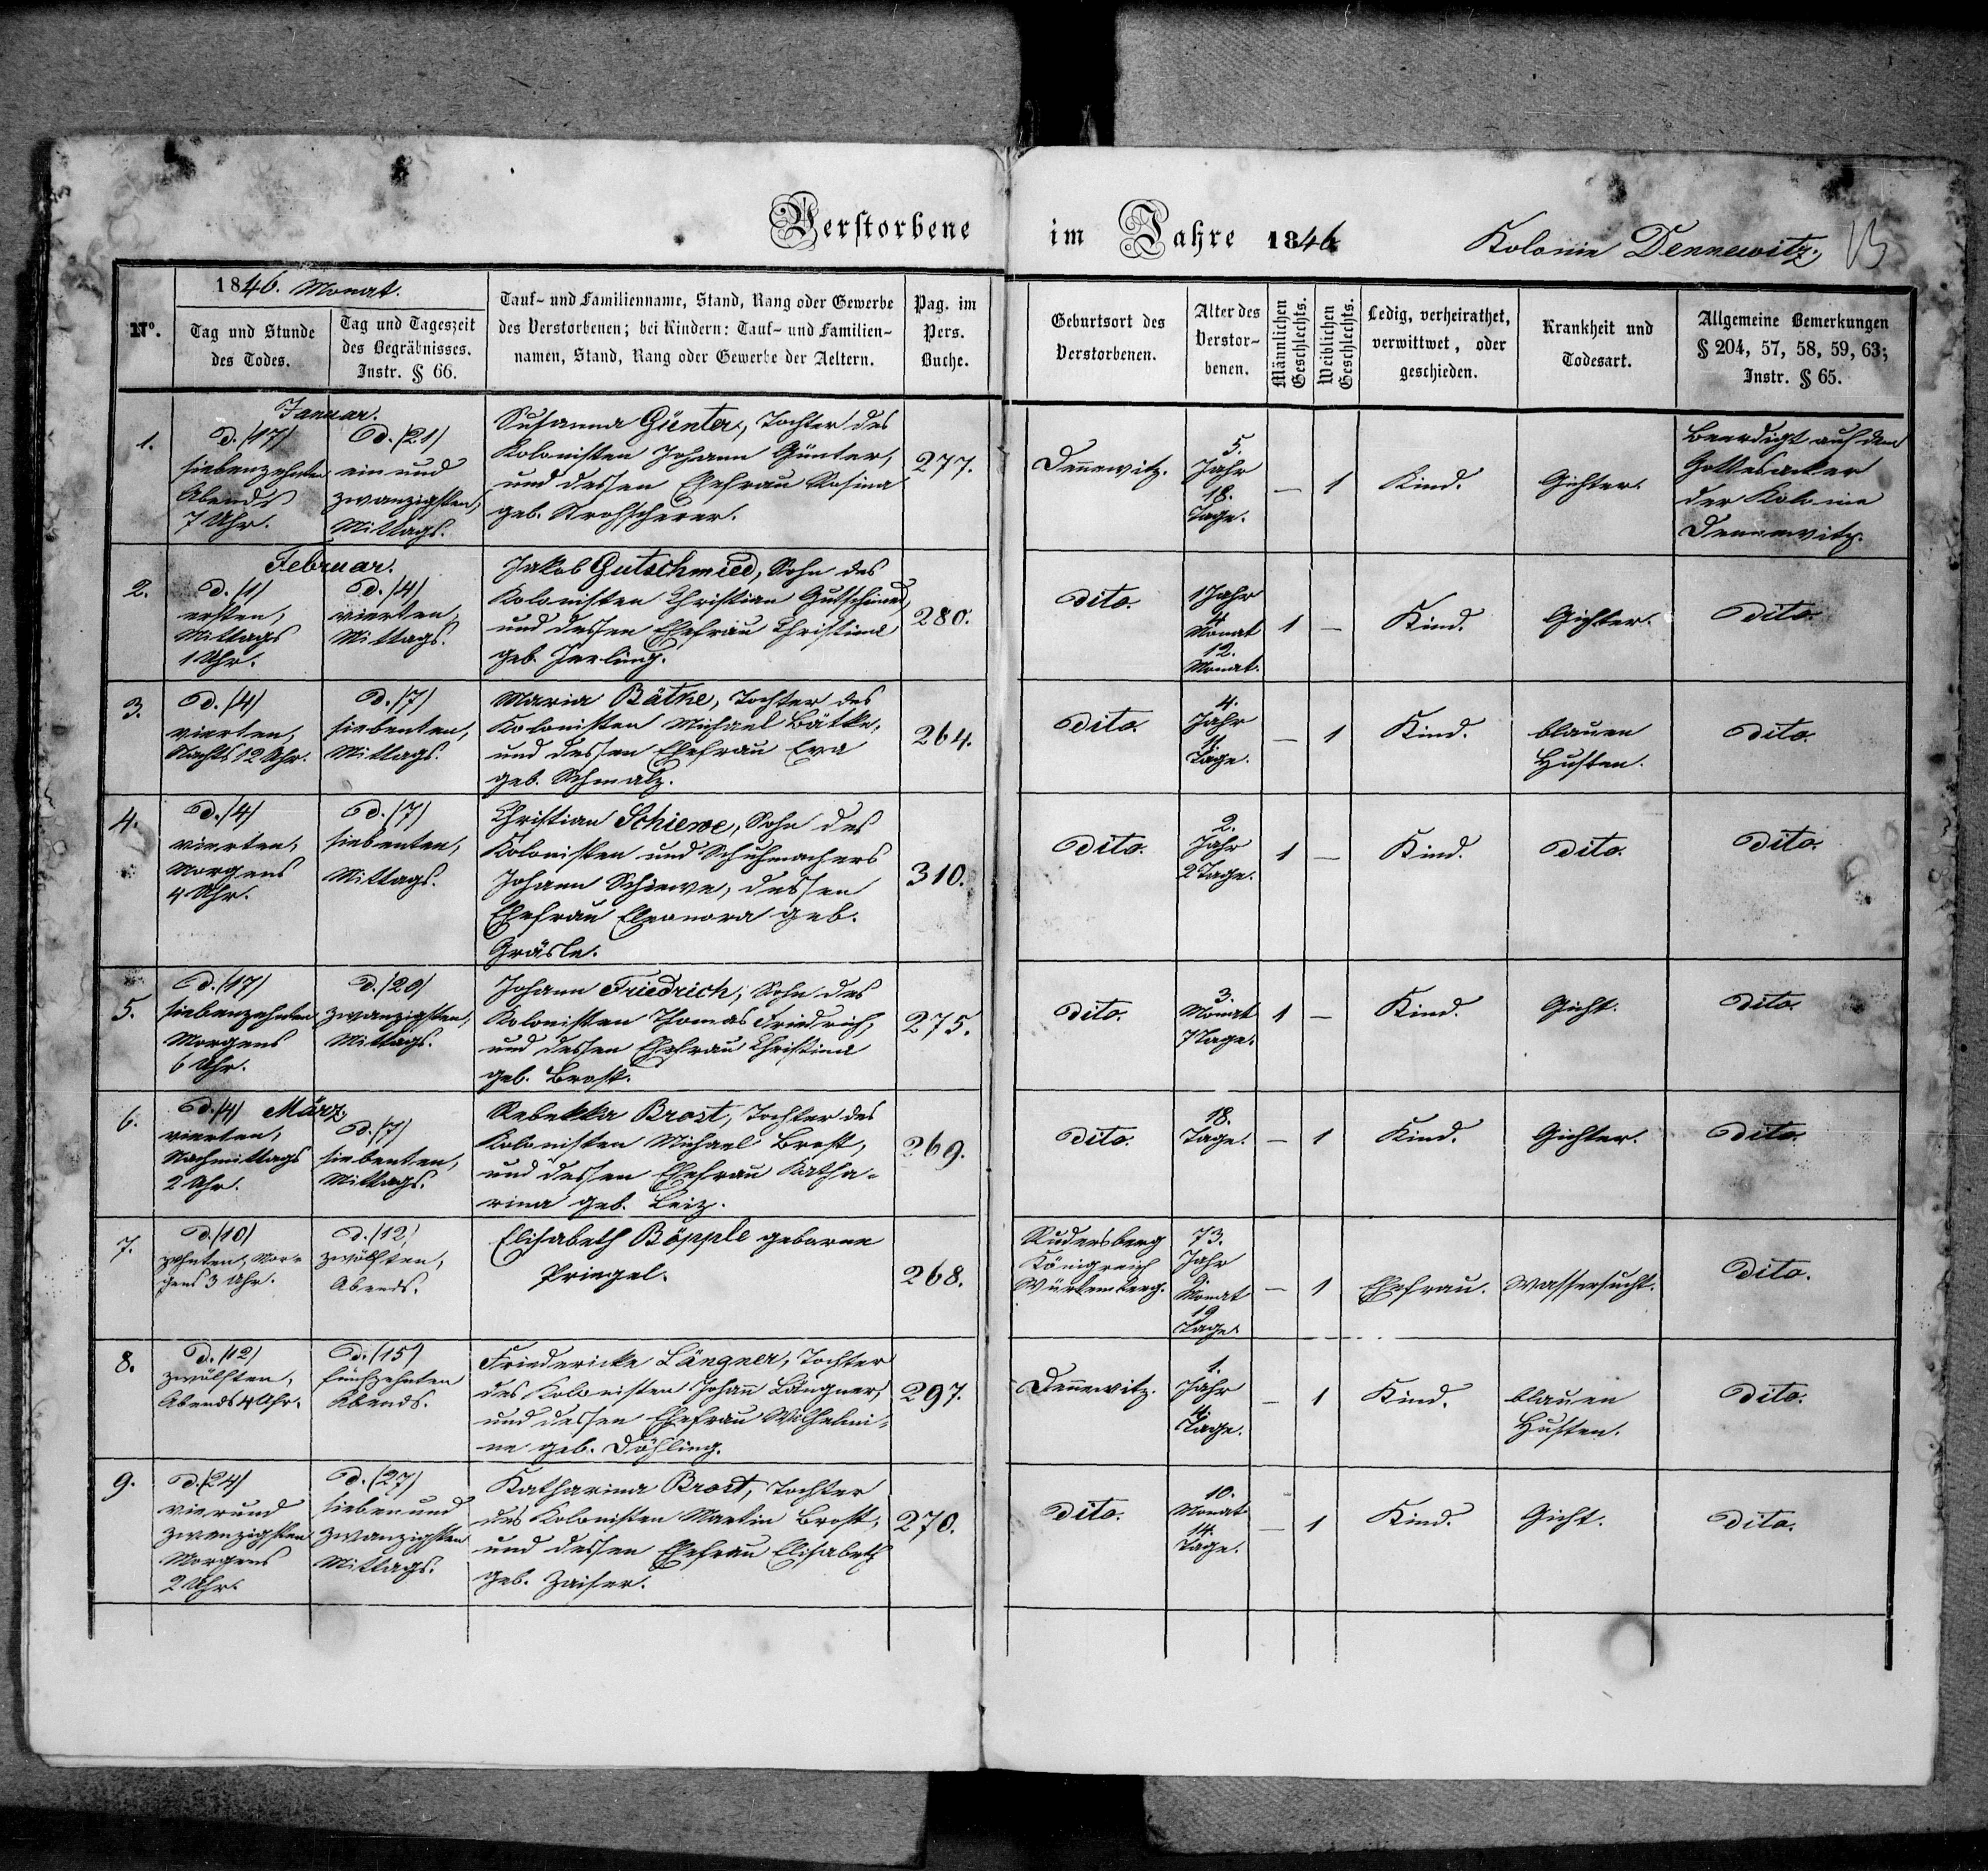 Verstorbene im Jahre 1846. Kolonie Dennewitz. 13
1846. Monat.
No.
Tag und Stunde
des Todes.
Tag und Tageszeit
des Begräbnisses.
Instr. § 66.
Tauf- und Familienname, Stand, Rang oder Gewerbe
des Verstorbenen; bei Kindern: Tauf- und Familien-
namen, Stand, Rang oder Gewerbe der Aeltern.
Pag. im
Pers.
Buche.
Geburtsort des
Verstorbenen.
Alter des
Verstor-
benen.
Männlichen
Geschlechts.
Weiblichen
Geschlechts.
Ledig, verheirathet,
verwittwet, oder
geschieden.
Krankheit und
Todesart.
Allgemeine Bemerkungen
§ 204, 57, 58, 59, 63;
Instr. § 65.
Januar.
1.
d. (17)
siebenzehnten
Abends
7 Uhr.
d. (21)
ein und
zwanzigsten,
Mittags.
Susanna Günter, Tochter des
Kolonisten Johann Günter,
und dessen Ehefrau Rosina
geb. Strohscherer.
277.
Dennewitz.
5.
Jahr
18.
Tage.
—
1
Kind.
Gichter.
Beerdigt auf dem
Gottesacker
der Kolonie
Dennewitz.
Februar.
2.
d. (1)
ersten,
Mittags
1 Uhr.
d. (4)
vierten,
Mittags.
Jakob Gutschmied, Sohn des
Kolonisten Christian Gutschmied,
und dessen Ehefrau Christine
geb. Ierling.
280.
dito.
1 Jahr
4
Monat
12.
Monat.
1
—
Kind.
Gichter.
dito.
3.
d. (4)
vierten,
Nachts 12 Uhr.
d. (7)
siebenten,
Mittags.
Maria Bätke, Tochter des
Kolonisten Michael Bätke,
und dessen Ehefrau Eva
geb. Schmalz.
264.
dito.
4.
Jahr
Tage.
—
1
Kind.
blauen
Husten.
dito.
4.
d. (4)
vierten,
Morgens
4 Uhr.
d. (7)
siebenten,
Mittags.
Christian Schiewe, Sohn des
Kolonisten und Schuhmachers
Johann Schiewe, dessen
Ehefrau Eleonora geb.
Gräsle.
310.
dito.
2.
Jahr
2 Tage.
1
—
Kind.
dito.
dito.
5.
d. (17)
siebenzehnten
Morgens
6 Uhr.
d. (20)
zwanzigsten,
Mittags.
Johann Friedrich, Sohn des
Kolonisten Thomas Friedrich,
und dessen Ehefrau Christina
geb. Brost.
275.
dito.
3.
Monat
7 Tage.
1
—
Kind.
Gicht.
dito.
März.
6.
d. (4)
vierten,
Nachmittags
2 Uhr.
d. (7)
siebenten,
Mittags.
Rebekka Brost, Tochter des
Kolonisten Michael Brost,
und dessen Ehefrau Katha-
rina geb. Leiz.
269.
dito.
18.
Tage.
—
1
Kind.
Gichter.
dito.
7.
d. (10)
zehnten, Mor-
gens 3 Uhr.
d. (12)
zwölften,
Abends.
Elisabeth Böpple geborne
Priegel.
268.
Rudersberg
Königreich
Würtemberg.
73.
Jahr
9.
Monat
19
Tage.
—
1
Ehefrau.
Wassersucht.
dito.
8.
d. (12)
zwölften,
Abends 4 Uhr.
d. (15)
fünfzehnten
Abends.
Friedericke Längner, Tochter
des Kolonisten Johann Längner,
und dessen Ehefrau Wilhelmi-
ne geb. Döhling.
297.
Dennewitz.
1.
Jahr
4.
Tage.
—
1
Kind.
blauen
Husten.
dito.
9.
d. (24)
vierund
zwanzigsten
Morgens
2 Uhr.
d. (27)
siebenund
zwanzigsten
Mittags.
Katharina Brost, Tochter
des Kolonisten Martin Brost,
und dessen Ehefrau Elisabeth
geb. Zaiser.
270.
dito.
10.
Monat
14.
Tage.
—
1
Kind.
Gicht.
dito.